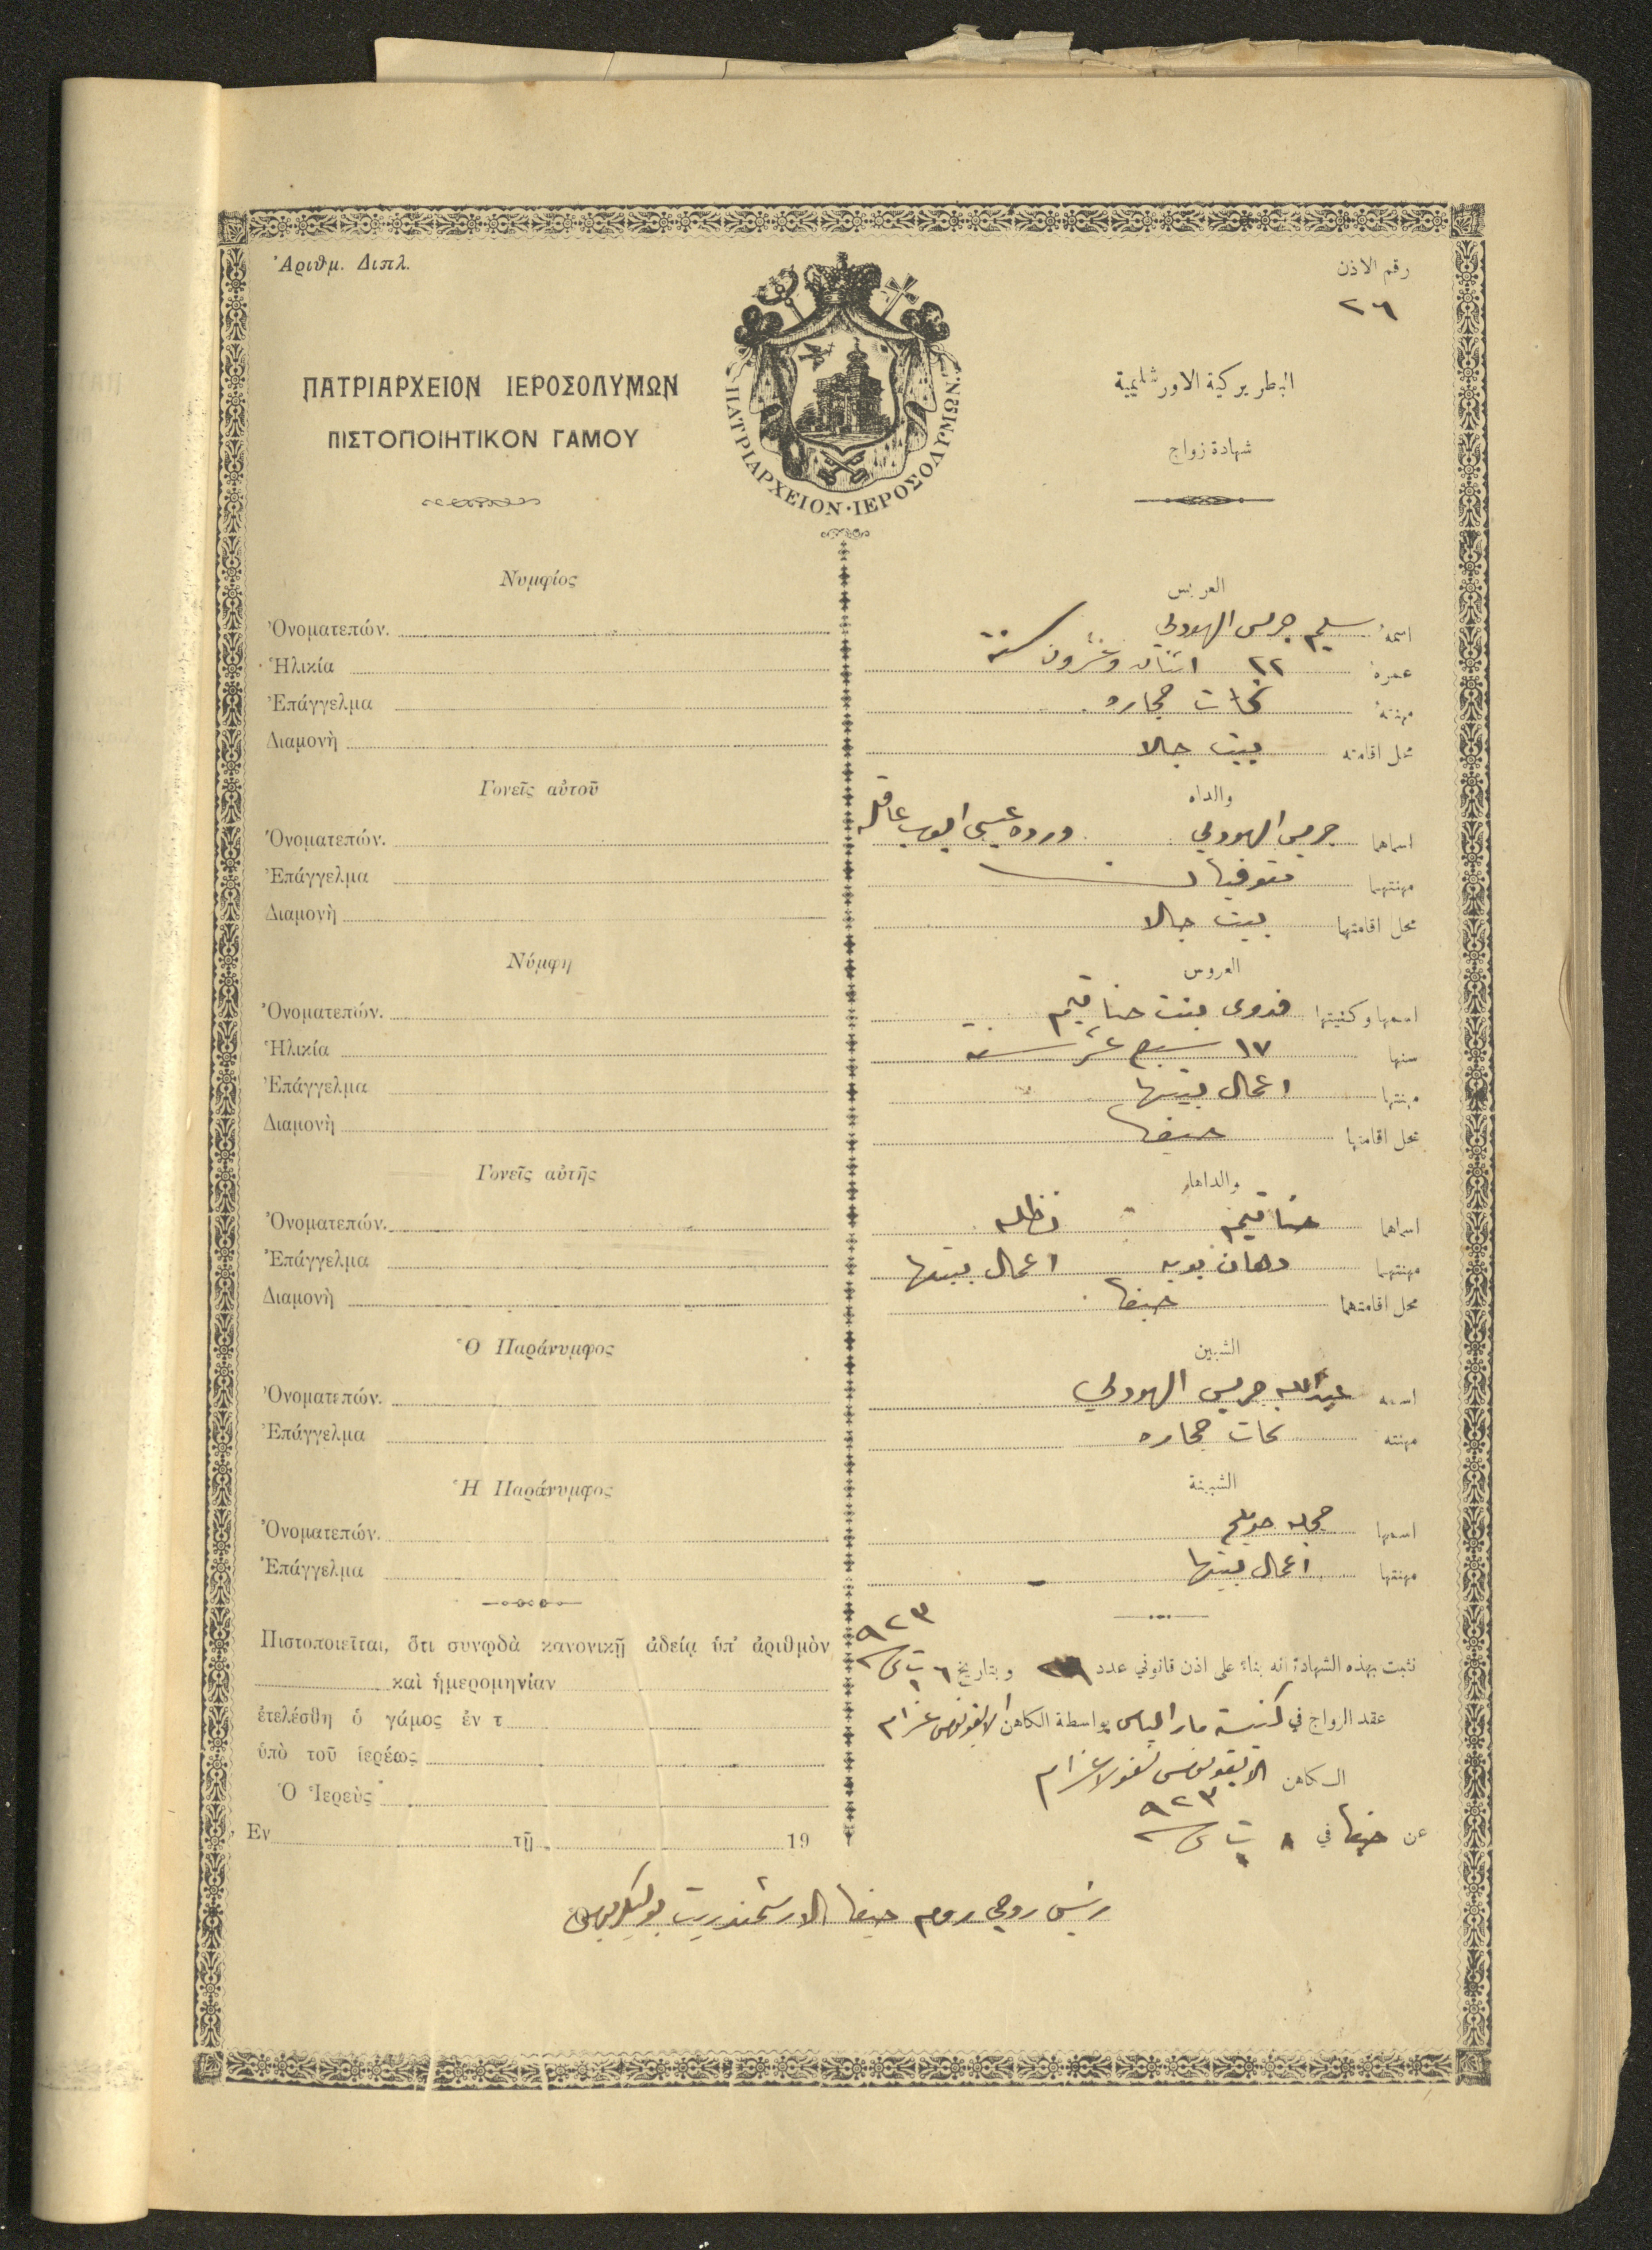 Ἀριθμ. Διπλ.
رقم الاذن
٢٦
ΠΑΤΡΙΑΡΧΕΙΟΝ ΙΕΡΟΣΟΛΥΜΩΝ
ΠΙΣΤΟΠΟΙΗΤΙΚΟΝ ΓΑΜΟΥ
ΠΑΤΡΙΑΡΧΕΙΟΝ·ΙΕΡΟΣΟΛΥΜΩΝ
البطريركية الاورشليمية
شهادة زواج
Νυμφίος
Ὀνοματεπών.
Ἡλικία
Ἐπάγγελμα
Διαμονὴ
Γονεῖς αὐτοῦ
Ὀνοματεπών.
Ἐπάγγελμα
Διαμονὴ
Νύμφη
Ὀνοματεπών.
Ἡλικία
Ἐπάγγελμα
Διαμονὴ
Γονεῖς αὐτῆς
Ὀνοματεπών.
Ἐπάγγελμα
Διαμονὴ
Ὁ Παράνυμφος
Ὀνοματεπών.
Ἐπάγγελμα
Ἡ Παράνυμφος
Ὀνοματεπών.
Ἐπάγγελμα
Πιστοποιεῖται, ὅτι συνῳδὰ κανονικῇ ἀδείᾳ ὑπ' ἀριθμὸν
καὶ ἡμερομηνίαν
ἐτελέσθη ὁ γάμος ἐν τ
ὑπὸ τοῦ ἱερέως
Ὁ Ἱερεὺς
Ἐν τῇ 19
العريس
اسمهُ سليم جريس الهودلي
عمرهُ ٢٢ اثنان وعشرون سنة
مهنتهُ نحات حجاره
محل اقامته بيت جالا
والداه
اسماهما جريس الهودلي ورده عيسى ايوب عاقله
مهنتهما متوفيان
محل اقامتهما بيت جالا
العروس
اسمها وكنيتها فدوى بنت حنا
سنها ١٧ سبع عشر سنة
مهنتها اعمال بيتها
محل اقامتها حيفا
والداها
اسماهما حنا نظله
مهنتهما دهان بويه اعمال بيتها
محل اقامتهما حيفا
الشبين
اسمه عبدالله جريس الهودلي
مهنته نحات حجاره
الشبينة
اسمها
مهنتها اعمال بيتها
نثبت بهذه الشهادة انه بناءً على اذن قانوني عدد ٢٦ وبتاريخ ٦ ت ٢ ٩٢٣
عقد الزواج في كنيسة مار الياس بواسطة الكاهن الايقونوموس عزام
الكاهن الايقونوموس نقولا عزام
عن حيفا في ٨ ت ٢ ٩٢٣
رئيس روحي روم حيفا الارشمندريت